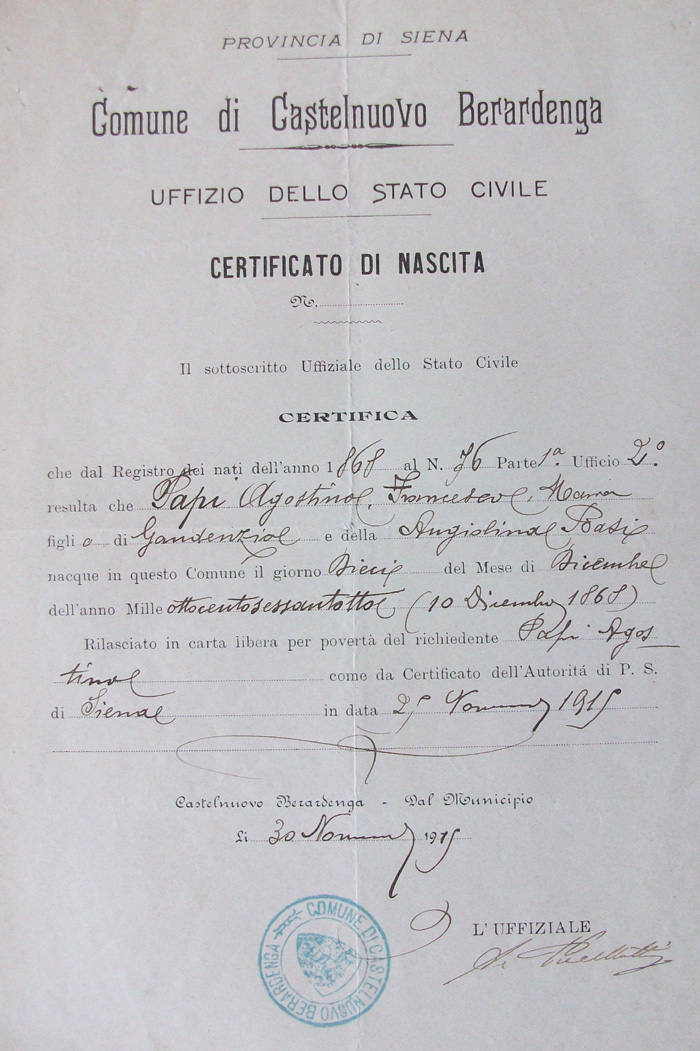 PROVINCIA DI SIENA
Comune di Castelnuovo Berardenga
UFFIZIO DELLO STATO CIVILE
CERTIFICATO DI NASCITA
N.
Il sottoscritto Uffiziale dello Stato Civile
CERTIFICA
che dal Registro dei nati dell'anno 1868 al N. 76 Parte 1ª Ufficio 2º
resulta che Papi Agostino, Francesco,
figlio di Gaudenzio e della Angiolina Basi
nacque in questo Comune il giorno Dieci del Mese di Dicembre
dell'anno Mille ottocentosessantotto (10 Dicembre 1868)
Rilasciato in carta libera per povertà del richiedente Papi Agos
tino come da Certificato dell'Autoritá di P. S.
di Siena in data 25 1915
Castelnuovo Berardenga - Dal Municipio
Li 30 1915
L'UFFIZIALE
COMUNE DI CASTELNUOVO BERARDENGA